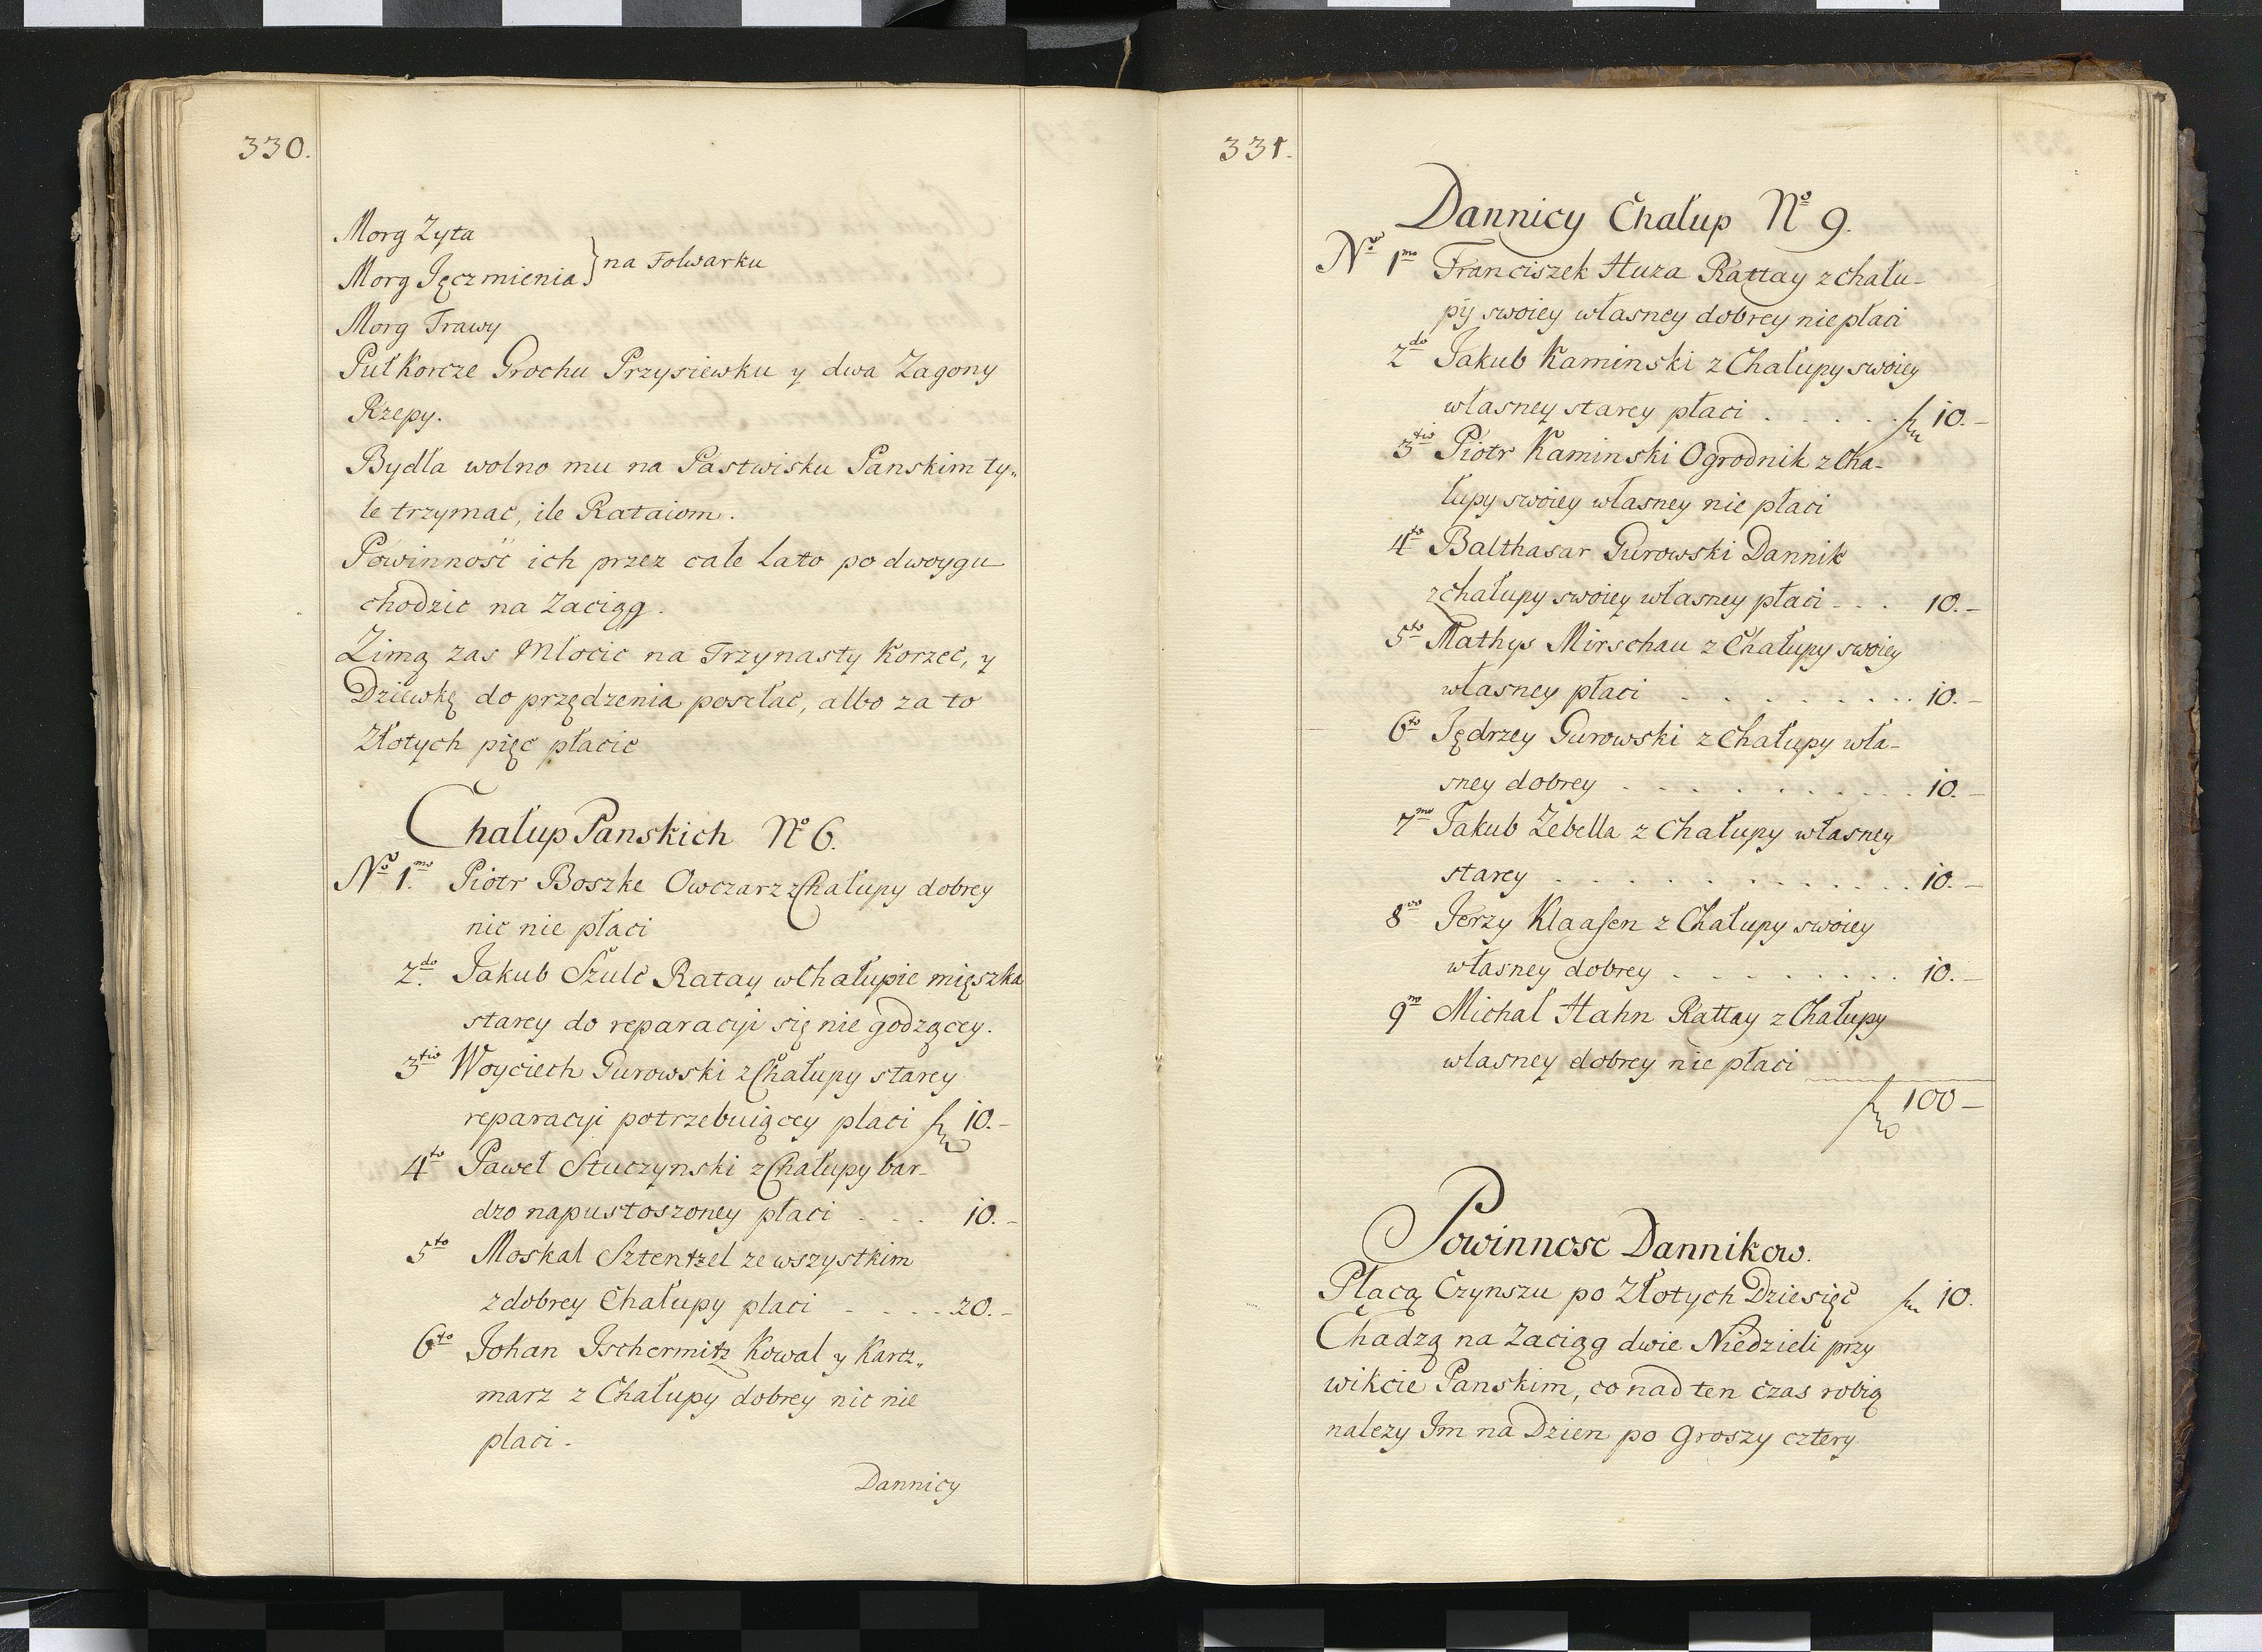 330.
Morg Zyta
Morg Jęczmienia } na Folwarku
Morg Trawy
Puł Korcze Grochu Przysiewku y dwa Zagony
Rzepy.
Bydła wolno mu na Pastwisku Panskim ty„
le trzymac, ile Rataiom.
Powinność ich przez cale Lato po dwoygu
chodzic na Zaciąg.
Zimą zas Młocic na Trzynasty Korzec, y
Dziewkę do przędzenia posełac, albo za to
Złotych pięc płacic
Chałup Panskich No 6.
No 1mo Piotr Boszke Owczarz z Chałupy dobrey
nic nie płaci
2do Jakub Szulc Ratay w Chałupie mięszka
starey do reparacyi się nie godzącey.
3tio Woyciech Gurowski z Chałupy starey
reparacyi potrzebuiącey placi fl 10.-
4to Paweł Stuczynski z Chałupy bar-
dzo napustoszoney płaci . . . 10.-
5to Moskal Sztentzel ze wszystkim
z dobrey Chałupy placi . . . . 20.-
6to Johan Ischermitz Kowal y Karcz„
marz z Chałupy dobrey nic nie
placi.
Dannicy
331.
Dannicy Chałup No 9.
No 1mo Franciszek Huza Rattay z chału-
py swoiey własney dobrey nie płaci
2do Jakub Kaminski z Chałupy swoiey
własney starey płaci . . . . . fl 10.-
3tio Piotr Kaminski Ogrodnik z Cha-
łupy swoiey własney nie płaci
4to Balthasar Gurowski Dannik
z chałupy swoiey własney płaci . . . 10.-
5to Mathys Mirschau z Chałupy swoiey
własney płaci . . . . . . . . 10.-
6to Jędrzey Gurowski z Chałupy wła-
sney dobrey . . . . . . . . . 10.-
7mo Jakub Zebella z Chałupy własney
starey . . . . . . . . . . . . 10.-
8vo Jerzy Klaasen z Chałupy swoiey
własney dobrey . . . . . . . . 10.-
9no Michal Hahn Rattay z Chałupy
własney dobrey nie płaci
fl 100-
Powinnosc Dannikow.
Płacą Czynszu po Złotych Dziesięć fl 10.
Chadzą na Zaciąg dwie Niedzieli przy
wikcie Panskim, co nad ten czas robią
nalezy Im na Dzien po Groszy cztery